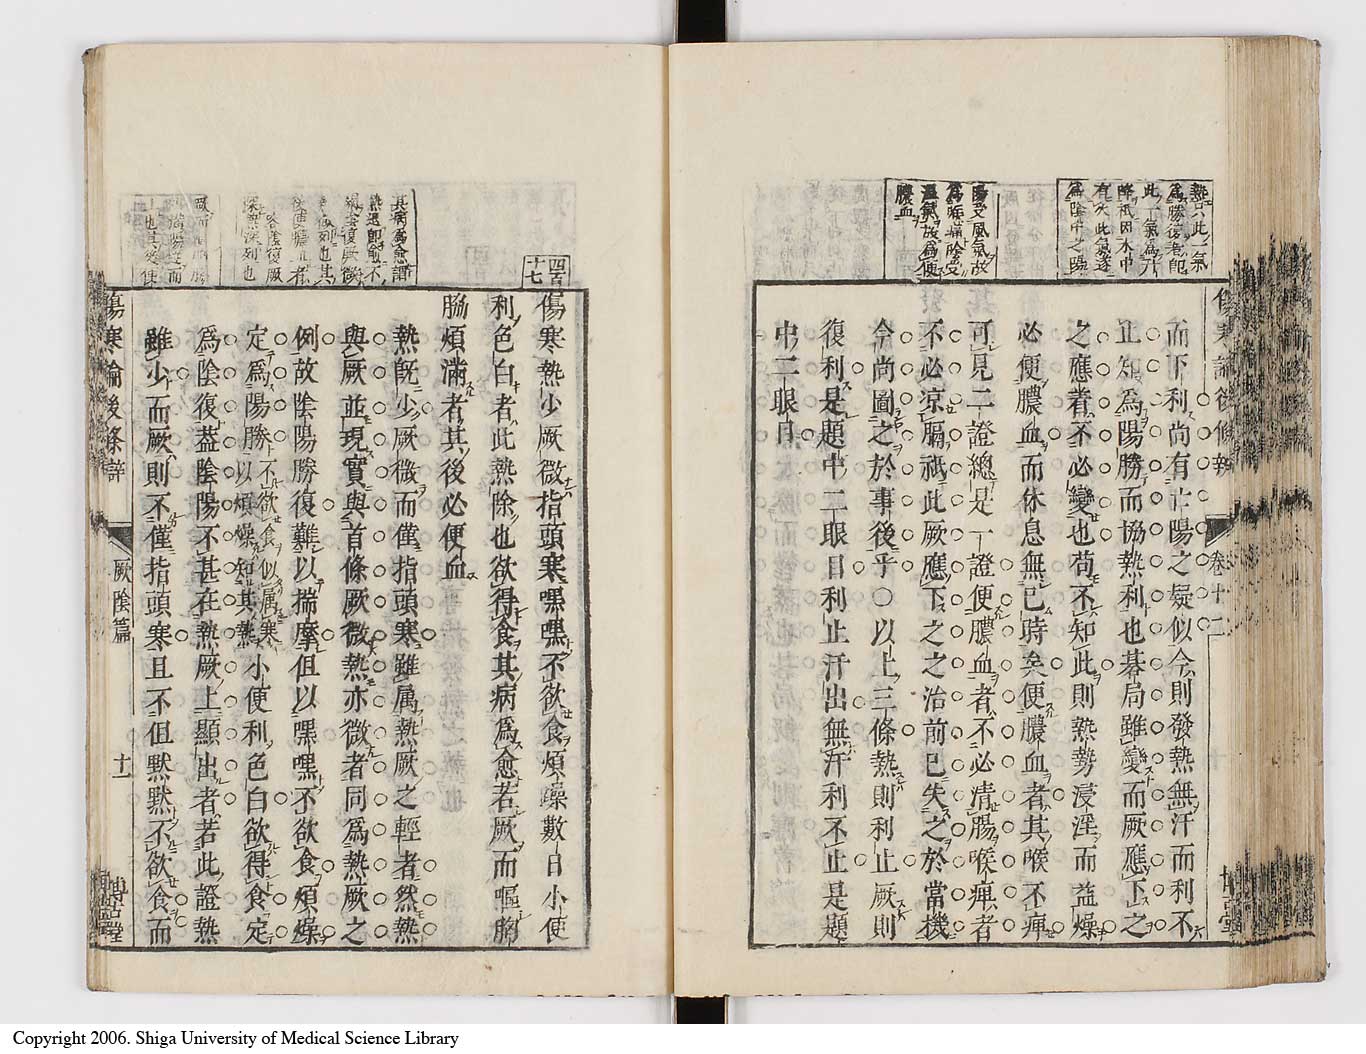 熱只此一氣
為勝復者即
此下氣為升
降祇因木中
有火此氣遂
為陰中之陽
陽受風氣故
為喉痛陰受
濕氣故為便
膿血
傷寒論後條辨
卷十二
博古堂
而下利尚有亡陽之疑似今則發熱無汗而利不
止知為陽勝而協熱利也碁局雖變而厥應下之
之應者不必變也苟不知此則熱勢浸淫而益燥
必便膿血而休息無已時矣便膿血者其喉不痺
可見二證總是一證便膿血者不必清腸喉痺者
不必涼膈祇此厥應下之之治前已失之於當機
今尚圖之於事後乎○以上三條熱則利止厥則
復利是題中二眼目利止汗出無汗利不止是題
中二眼目
四百
十七
傷寒熱少厥微指頭寒嘿嘿不欲食煩躁數日小便
利色白者此熱除也欲得食其病為愈若厥而嘔胸
脇煩滿者其後必便血
熱既少厥微而僅指頭寒雖属熱厥之輕者然熱
與厥並現實與首條厥微熱亦微者同為熱厥之
例故陰陽勝復難以揣摩但以嘿嘿不欲食煩燥
定為陽勝不欲食似属寒以煩燥知其熱小便利色白欲得食定
為陰復葢陰陽不甚在熱厥上顯出者若此證熱
雖少而厥則不僅指頭寒且不但默默不欲食而
其病為愈謂
熱退即愈不
傷寒論後條辨
厥陰篇
十一
博古堂